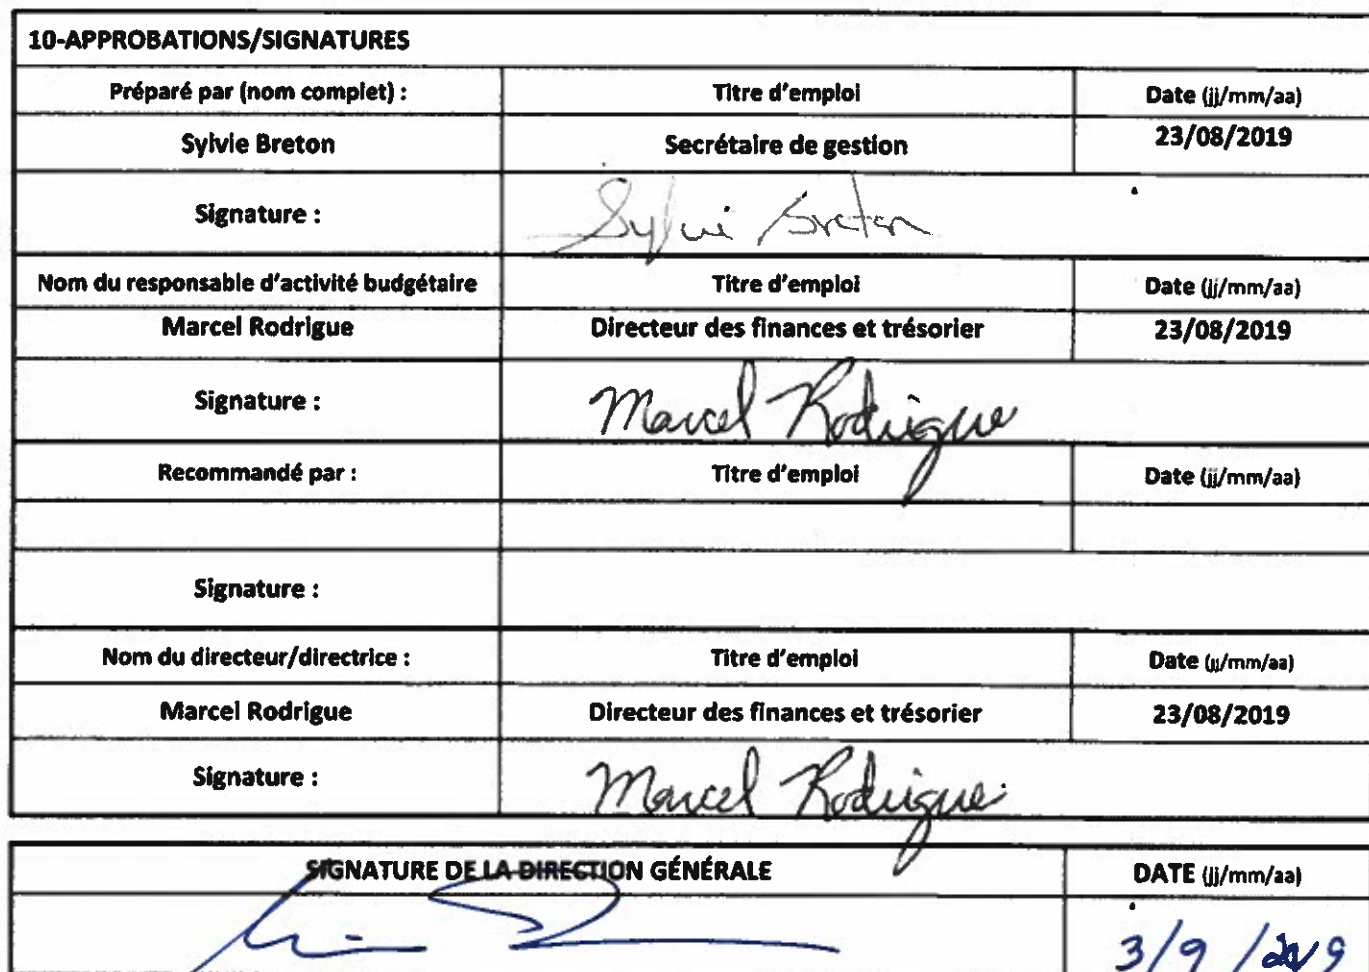 10-APPROBATIONS/SIGNATURES
Préparé par (nom complet) : Titre d'emploi Date (jj/mm/aa)
Sylvie Breton Secrétaire de gestion 23/08/2019
Signature : Sylvie Breton
Nom du responsable d'activité budgétaire Titre d'emploi Date (jj/mm/aa)
Marcel Rodrigue Directeur des finances et trésorier 23/08/2019
Signature : Marcel Rodrigue
Recommandé par : Titre d'emploi Date (jj/mm/aa)
Signature :
Nom du directeur/directrice : Titre d'emploi Date (jj/mm/aa)
Marcel Rodrigue Directeur des finances et trésorier 23/08/2019
Signature : Marcel Rodrigue
SIGNATURE DE LA DIRECTION GÉNÉRALE DATE (jj/mm/aa)
3/9/2019